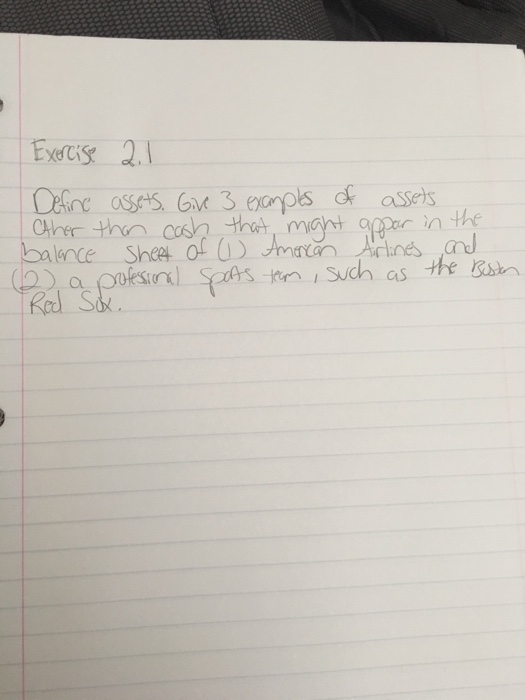 Exercise 2.1
Define assets. Give 3 examples of assets
other than cash that might appear in the
balance sheet of (1) American Airlines and
(2) a profesional sports team, such as the Boston
Red Sox.